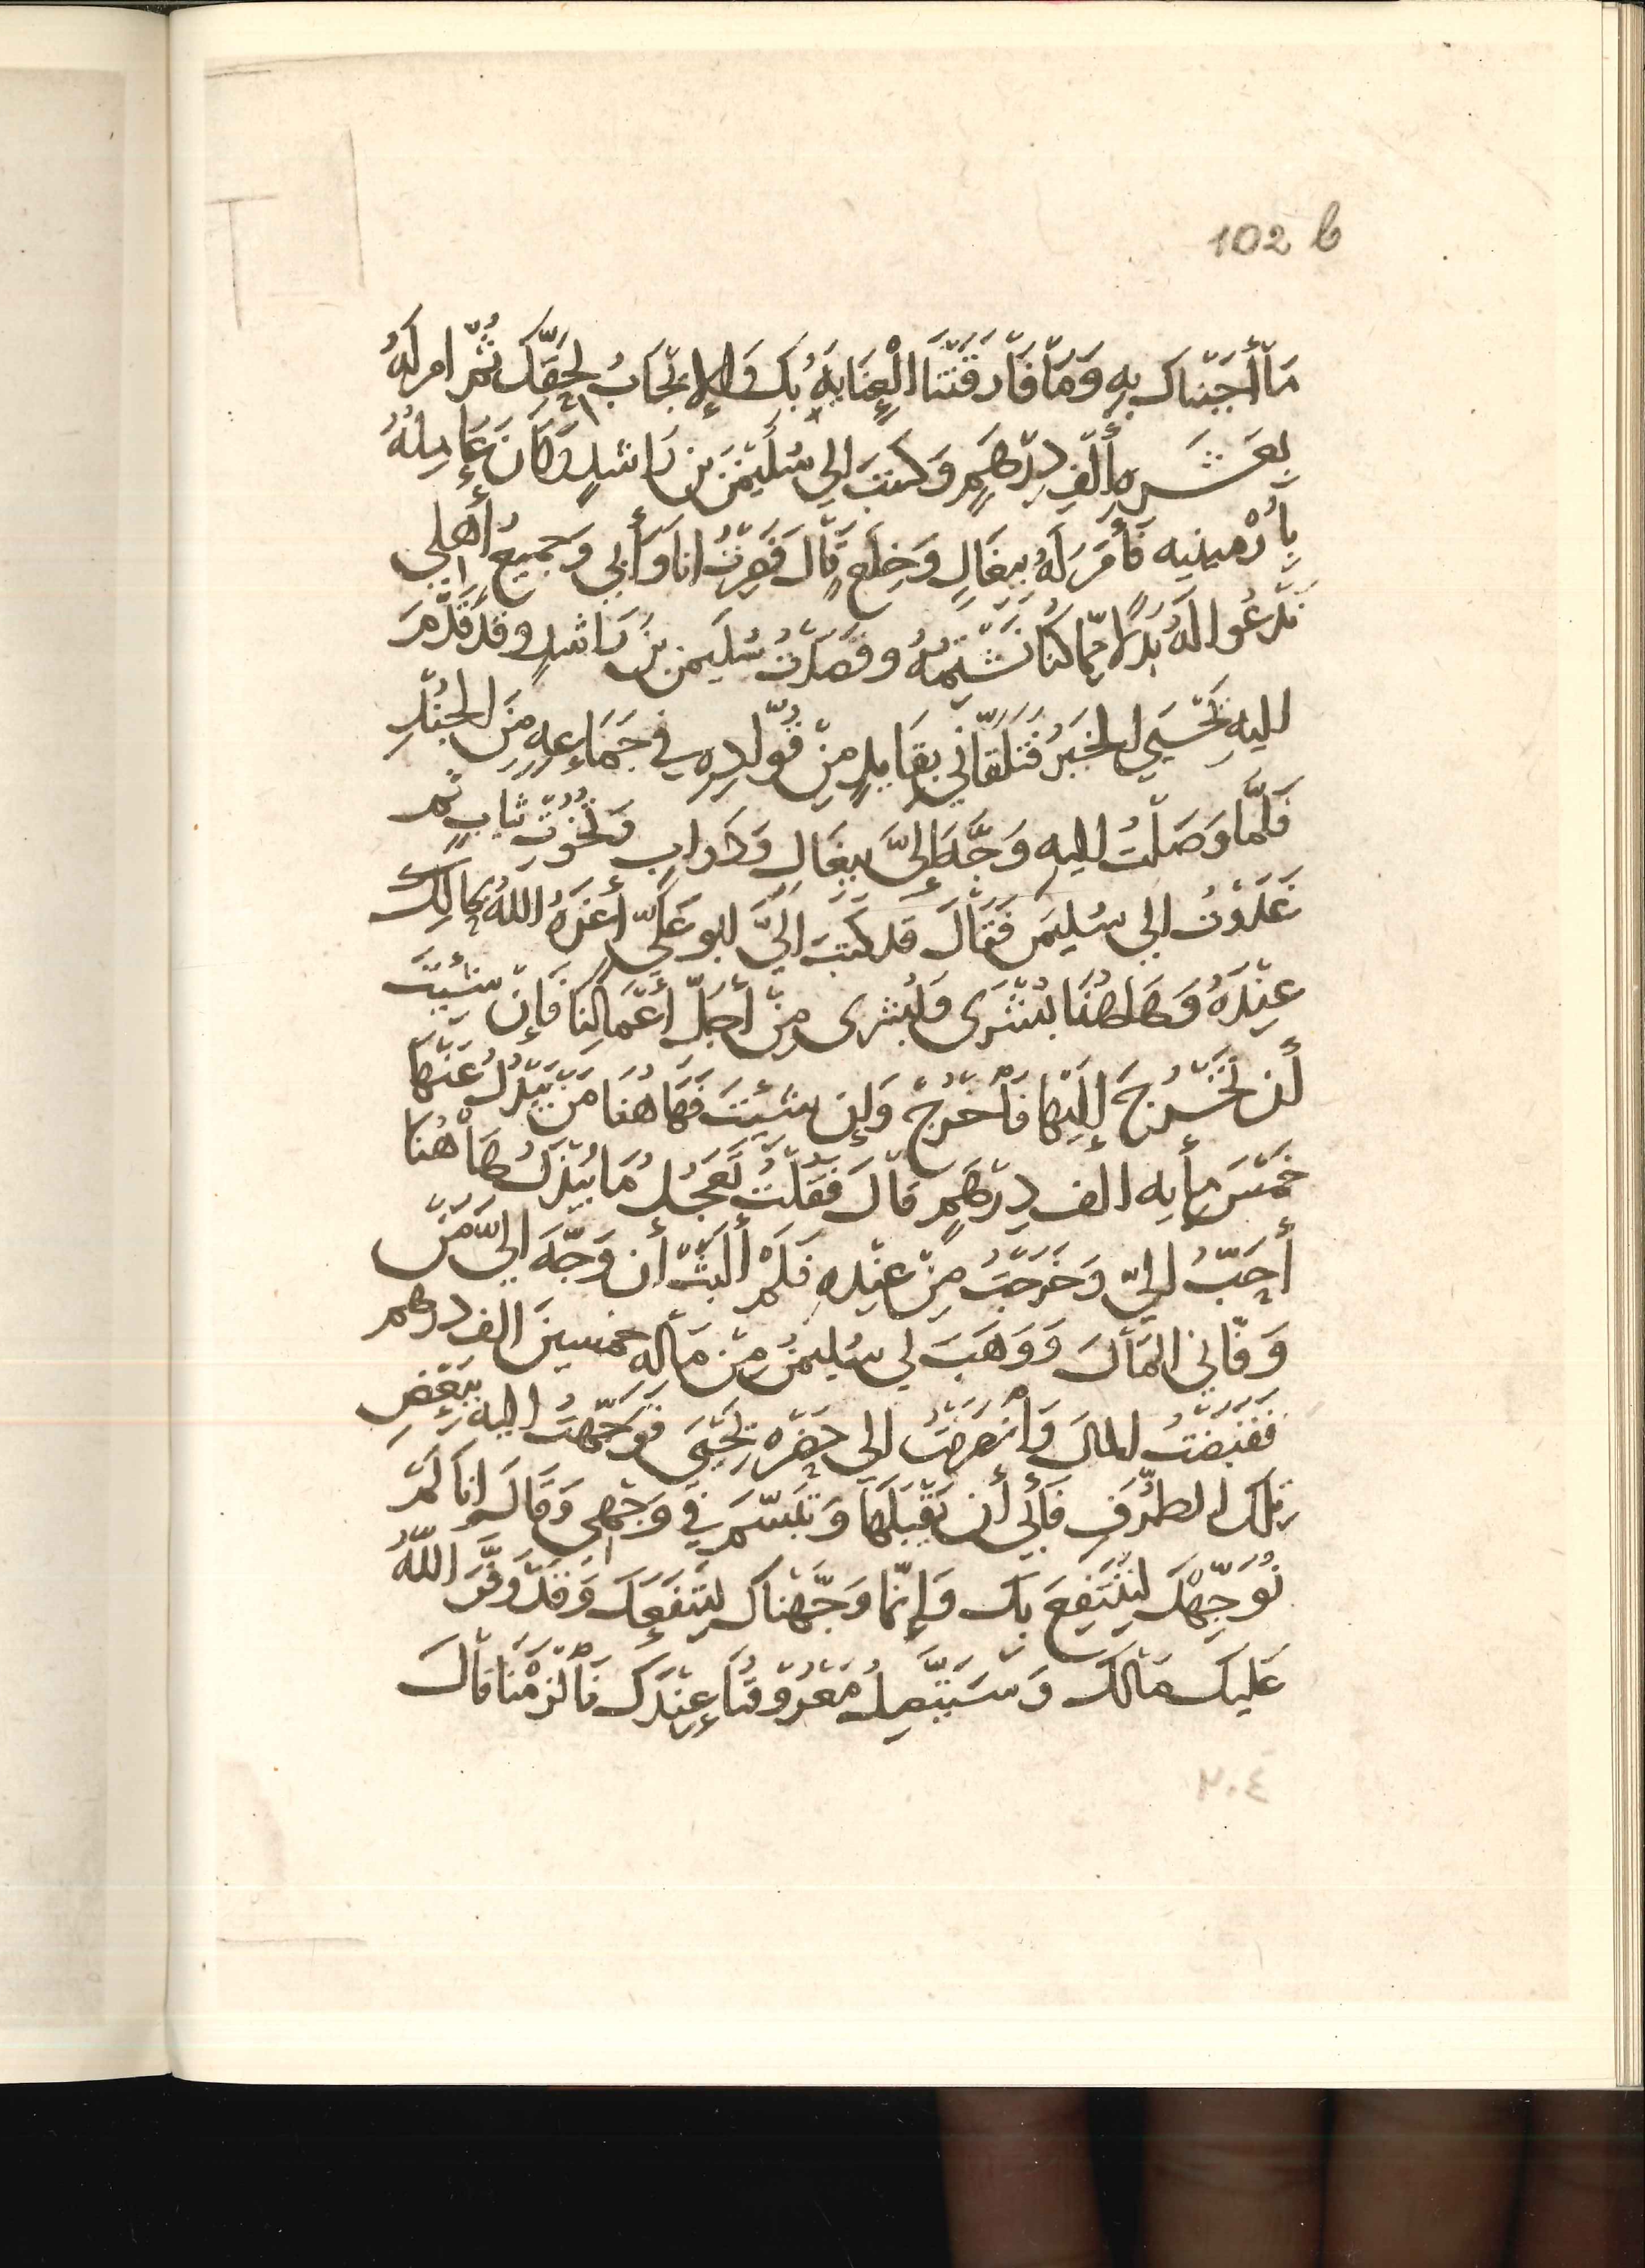 102 b
مَا أَجَبْنَاك بِهِ وَمَا فَارَقَتْنَا الْعِنَايَةُ بِكَ وَالإِيْجَابُ لِحَقِّكَ ثُمَّ امر لَهُ
بِعَشَرِهِ أَلْفِ دِرْهَمٍ وَكتبَ الى سُلَيْمَنَ بن رَاشدٍ وَكَانَ عَامِلهُ
بِأَرْمِينِيه فَأَمَرَ لَهُ بِبِغَالٍ وَخِلَعٍ قَالَ فَصِرْتُ انا وَأَبِى وَجَمِيعُ أَهْلِى
نَدْعُوا لَهُ بَدَلًا مِمَّا كُنَّا نَشْتِمُهُ وقَصَدْتُ سُلَيمن بنَ رَاشدٍ وقَدْ قَدَّمَ
اليهِ يَحْيَى الخَبَرُ فَتَلَقَّانِي بِقَايدٍ مِنْ قُوَّادِهِ فِي جَمَاعِهٍ مِنَ الجُنْدِ
فَلَمَّا وَصَلْتُ اليهِ وَجَّهَ إِلَىَّ بِبِغَال وَدَوابٍ وَتُخُوْتِ ثيابٍ ثم
غَدَوْتُ الى سُليمَن فَقَالَ قد كَتبَ الَيَّ ابو عَليٍّ أعَزَهُ اللهُ بحالِكَ
عِنْدَهُ وَهَاهُنَا بُشْرَى وَلُبْشرى مِنْ أَجَلِّ أَعْمَالِنَا فَإِنْ شِئْتَ
أَن تَخْرُجَ إِلَيها فَاخْرُجْ وَإِن شئْتَ فَهَاهُنَا مَنْ يَبْذُلُ عَنْهَا
خَمْسَ مِأَيِه الف دِرْهَمٍ قالَ فَقُلْتُ تَعَجُّلُ مَا يُبْذَلُ هَاهُنا
أَحَبُّ اليَّ وَخَرَجْتُ مِنْ عِنْدِه فَلَمْ أَلْبَثْ أَن وَجَّهَ اليَّ مَنْ
وَفَّانِي المَالَ وَوَهَبَ لي سُليمنُ مِنْ مَالِهِ خمسينَ الف درهم
فَقَبَضْتُ المالَ وَانْصَرَفْتُ الى حَضْرَهِ يَحْيَى فَوَجَّهْتُ اليهِ بِبَعْضِ
تِلْكَ الطُّرَفِ فَأَبَى أَن يَقْبَلَهَا وَتَبَسَّمَ فِي وَجْهِى وَقَالَ انا لَمْ
نُوَجِّهْكَ لِنَنْتَفِعَ بِكَ وَإِنَّمَا وَجَّهْنَاكَ لِنَنْفَعَكَ وَقَدْ وَفَّرَ اللَّهُ
عَلَيكَ مَالَكَ وَسَيَتَّصِلُ مَعْرُوفُنَا عِنْدَكَ فَالْزَمْنَا قَالَ
٢٠٤